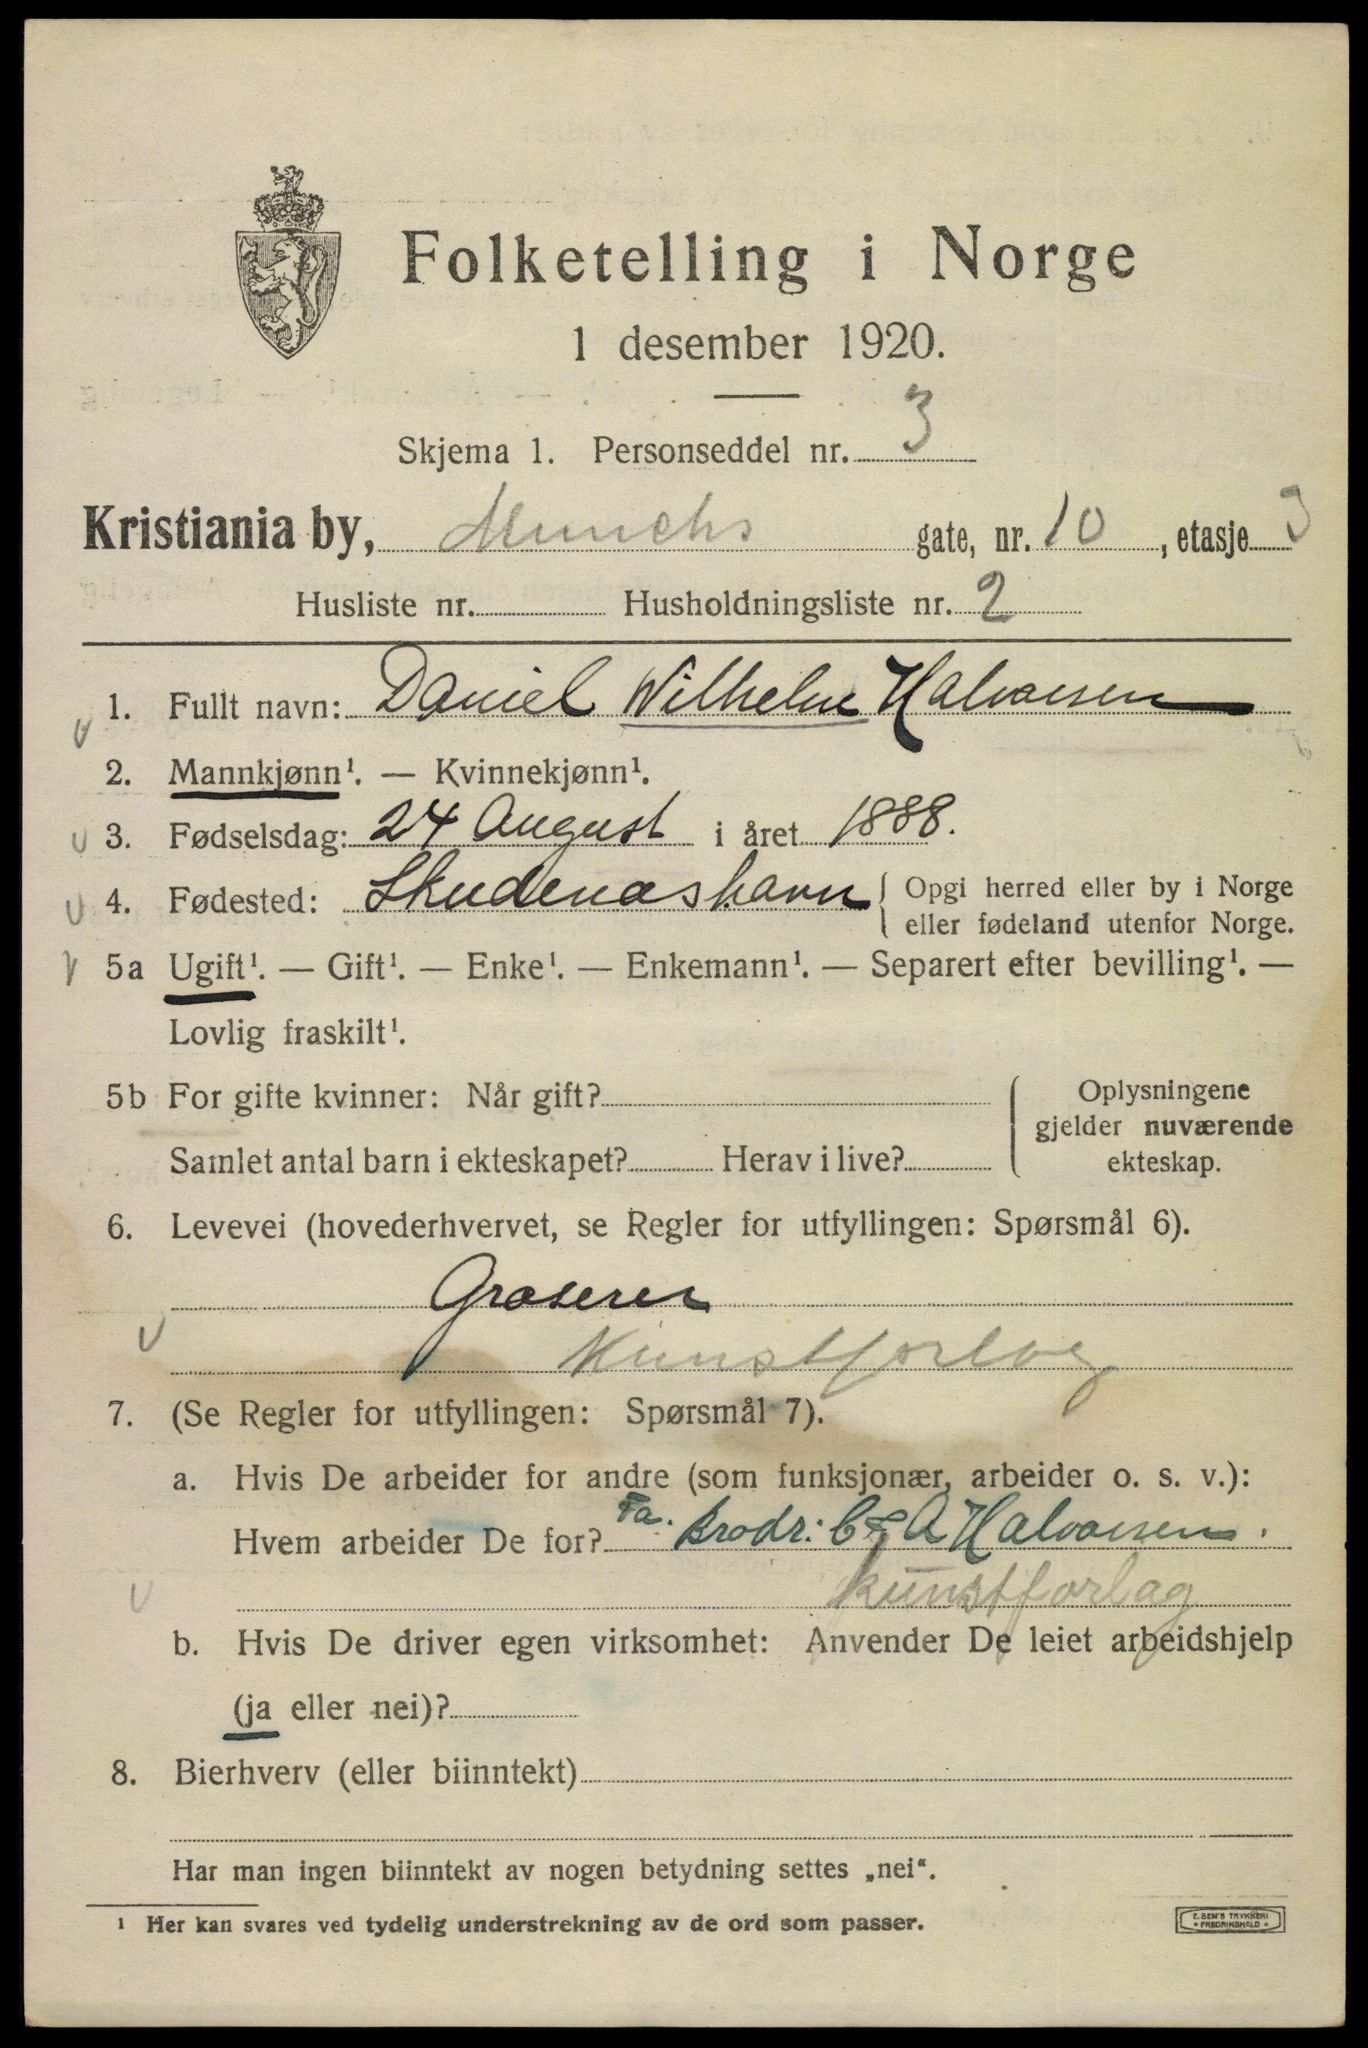 Folketelling i Norge
1 desember 1920.
Skjema 1. Personseddel nr. 3
Kristiania by, Munchs gate, nr. 10, etasje 3
Husliste nr. Husholdningsliste nr. 2
1. Fullt navn: Daniel Wilhelm Halvorsen
2. Mannkjønn¹. — Kvinnekjønn¹.
3. Fødselsdag: 24 August i året 1888.
4. Fødested: Skudeneshavn { Opgi herred eller by i Norge
eller fødeland utenfor Norge.
5a Ugift¹. — Gift¹. — Enke¹. — Enkemann¹. — Separert efter bevilling¹. —
Lovlig fraskilt¹.
5b For gifte kvinner: Når gift?
Samlet antal barn i ekteskapet? Herav i live?
Oplysningene
gjelder nuværende
ekteskap.
6. Levevei (hovederhvervet, se Regler for utfyllingen: Spørsmål 6).
Graserer
Kunstforlag
7. (Se Regler for utfyllingen: Spørsmål 7).
a. Hvis De arbeider for andre (som funksjonær, arbeider o. s. v.):
Hvem arbeider De for? Fa. Brodr. C & A Halvorsen.
Kunstforlag
b. Hvis De driver egen virksomhet: Anvender De leiet arbeidshjelp
(ja eller nei)?
8. Bierhverv (eller biinntekt)
Har man ingen biinntekt av nogen betydning settes „nei“.
¹ Her kan svares ved tydelig understrekning av de ord som passer.
E. SEM'S TRYKKERI
FREDRIKSHALD